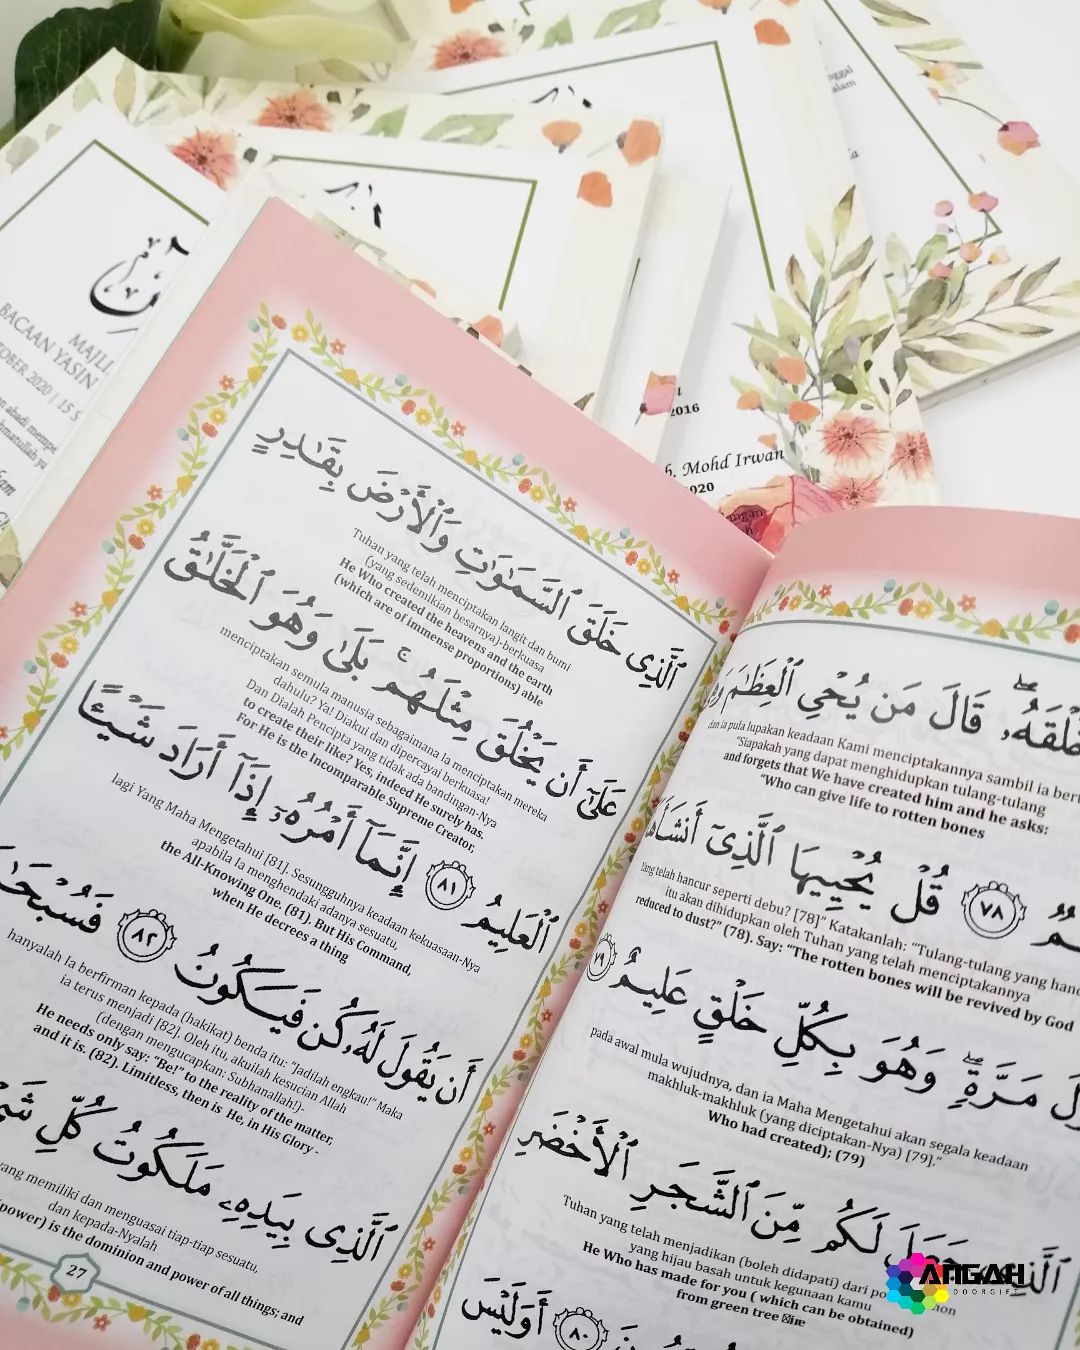 MAJLI
BACAAN YASIN
TOBER 2020 | 15 S
an abadi mempe
hmatullah ya
2016
Mohd Irwan
2020
خَلْقَهُۥ ۖ قَالَ مَن يُحْيِ ٱلْعِظَٰمَ
dan ia pula lupakan keadaan Kami menciptakannya sambil ia ber
"Siapakah yang dapat menghidupkan tulang-tulang
and forgets that We have created him and he asks:
"Who can give life to rotten bones
٧٨ قُلْ يُحْيِيهَا ٱلَّذِىٓ أَنشَأَهَا
Yang telah hancur seperti debu? [78]" Katakanlah: "Tulang-tulang yang hanc
itu akan dihidupkan oleh Tuhan yang telah menciptakannya
reduced to dust?" (78). Say: "The rotten bones will be revived by God
مَرَّةٍ ۖ وَهُوَ بِكُلِّ خَلْقٍ عَلِيمٌ ٧٩
pada awal mula wujudnya, dan ia Maha Mengetahui akan segala keadaan
makhluk-makhluk (yang diciptakan-Nya) [79]."
Who had created); (79)
ٱلَّذِى جَعَلَ لَكُم مِّنَ ٱلشَّجَرِ ٱلْأَخْضَرِ
Tuhan yang telah menjadikan (boleh didapati) dari po
yang hijau basah untuk kegunaan kamu
He Who has made for you ( which can be obtained)
from green tree
٨٠ أَوَلَيْسَ
ٱلَّذِى خَلَقَ ٱلسَّمَٰوَٰتِ وَٱلْأَرْضَ بِقَٰدِرٍ
Tuhan yang telah menciptakan langit dan bumi
(yang sedemikian besarnya)-berkuasa
He Who created the heavens and the earth
(which are of immense proportions) able
عَلَىٰٓ أَن يَخْلُقَ مِثْلَهُم ۚ بَلَىٰ وَهُوَ ٱلْخَلَّٰقُ
menciptakan semula manusia sebagaimana Ia menciptakan mereka
dahulu? Ya! Diakui dan dipercayai berkuasa!
Dan Dialah Pencipta yang tidak ada bandingan-Nya
to create their like? Yes, indeed He surely has.
For He is the Incomparable Supreme Creator,
ٱلْعَلِيمُ ٨١ إِنَّمَآ أَمْرُهُۥٓ إِذَآ أَرَادَ شَيْـًٔا
lagi Yang Maha Mengetahui [81]. Sesungguhnya keadaan kekuasaan-Nya
apabila Ia menghendaki adanya sesuatu,
the All-Knowing One. (81). But His Command,
when He decrees a thing
أَن يَقُولَ لَهُۥ كُن فَيَكُونُ ٨٢ فَسُبْحَٰنَ
hanyalah Ia berfirman kepada (hakikat) benda itu: "Jadilah engkau!" Maka
ia terus menjadi [82]. Oleh itu, akuilah kesucian Allah
(dengan mengucapkan: Subhanallah!)-
He needs only say: "Be!" to the reality of the matter,
and it is. (82). Limitless, then is He, in His Glory -
ٱلَّذِى بِيَدِهِۦ مَلَكُوتُ كُلِّ
yang memiliki dan menguasai tiap-tiap sesuatu,
dan kepada-Nyalah
(power) is the dominion and power of all things; and
27
ANGAH
DOORGIFT